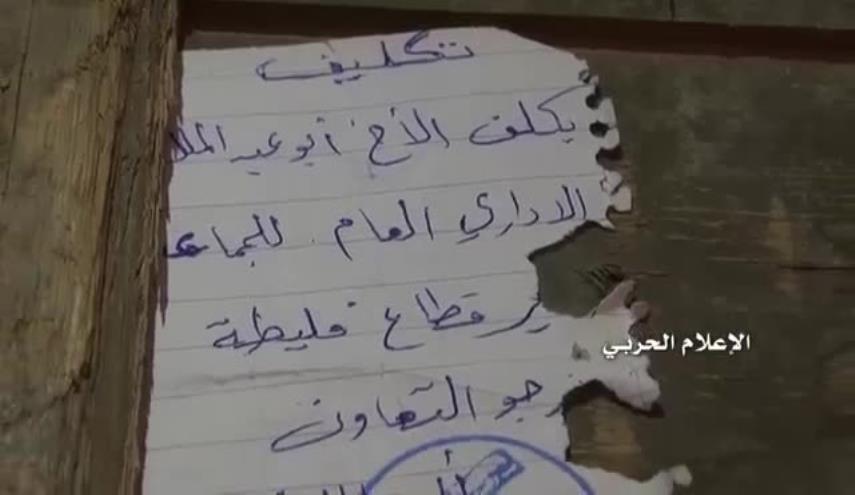 تكليف
يكلف الأخ أبو عبد الملا
الاداري العام للجماعـ
ـير قطاع فليطة
رجو التعاون
الإعلام الحربي